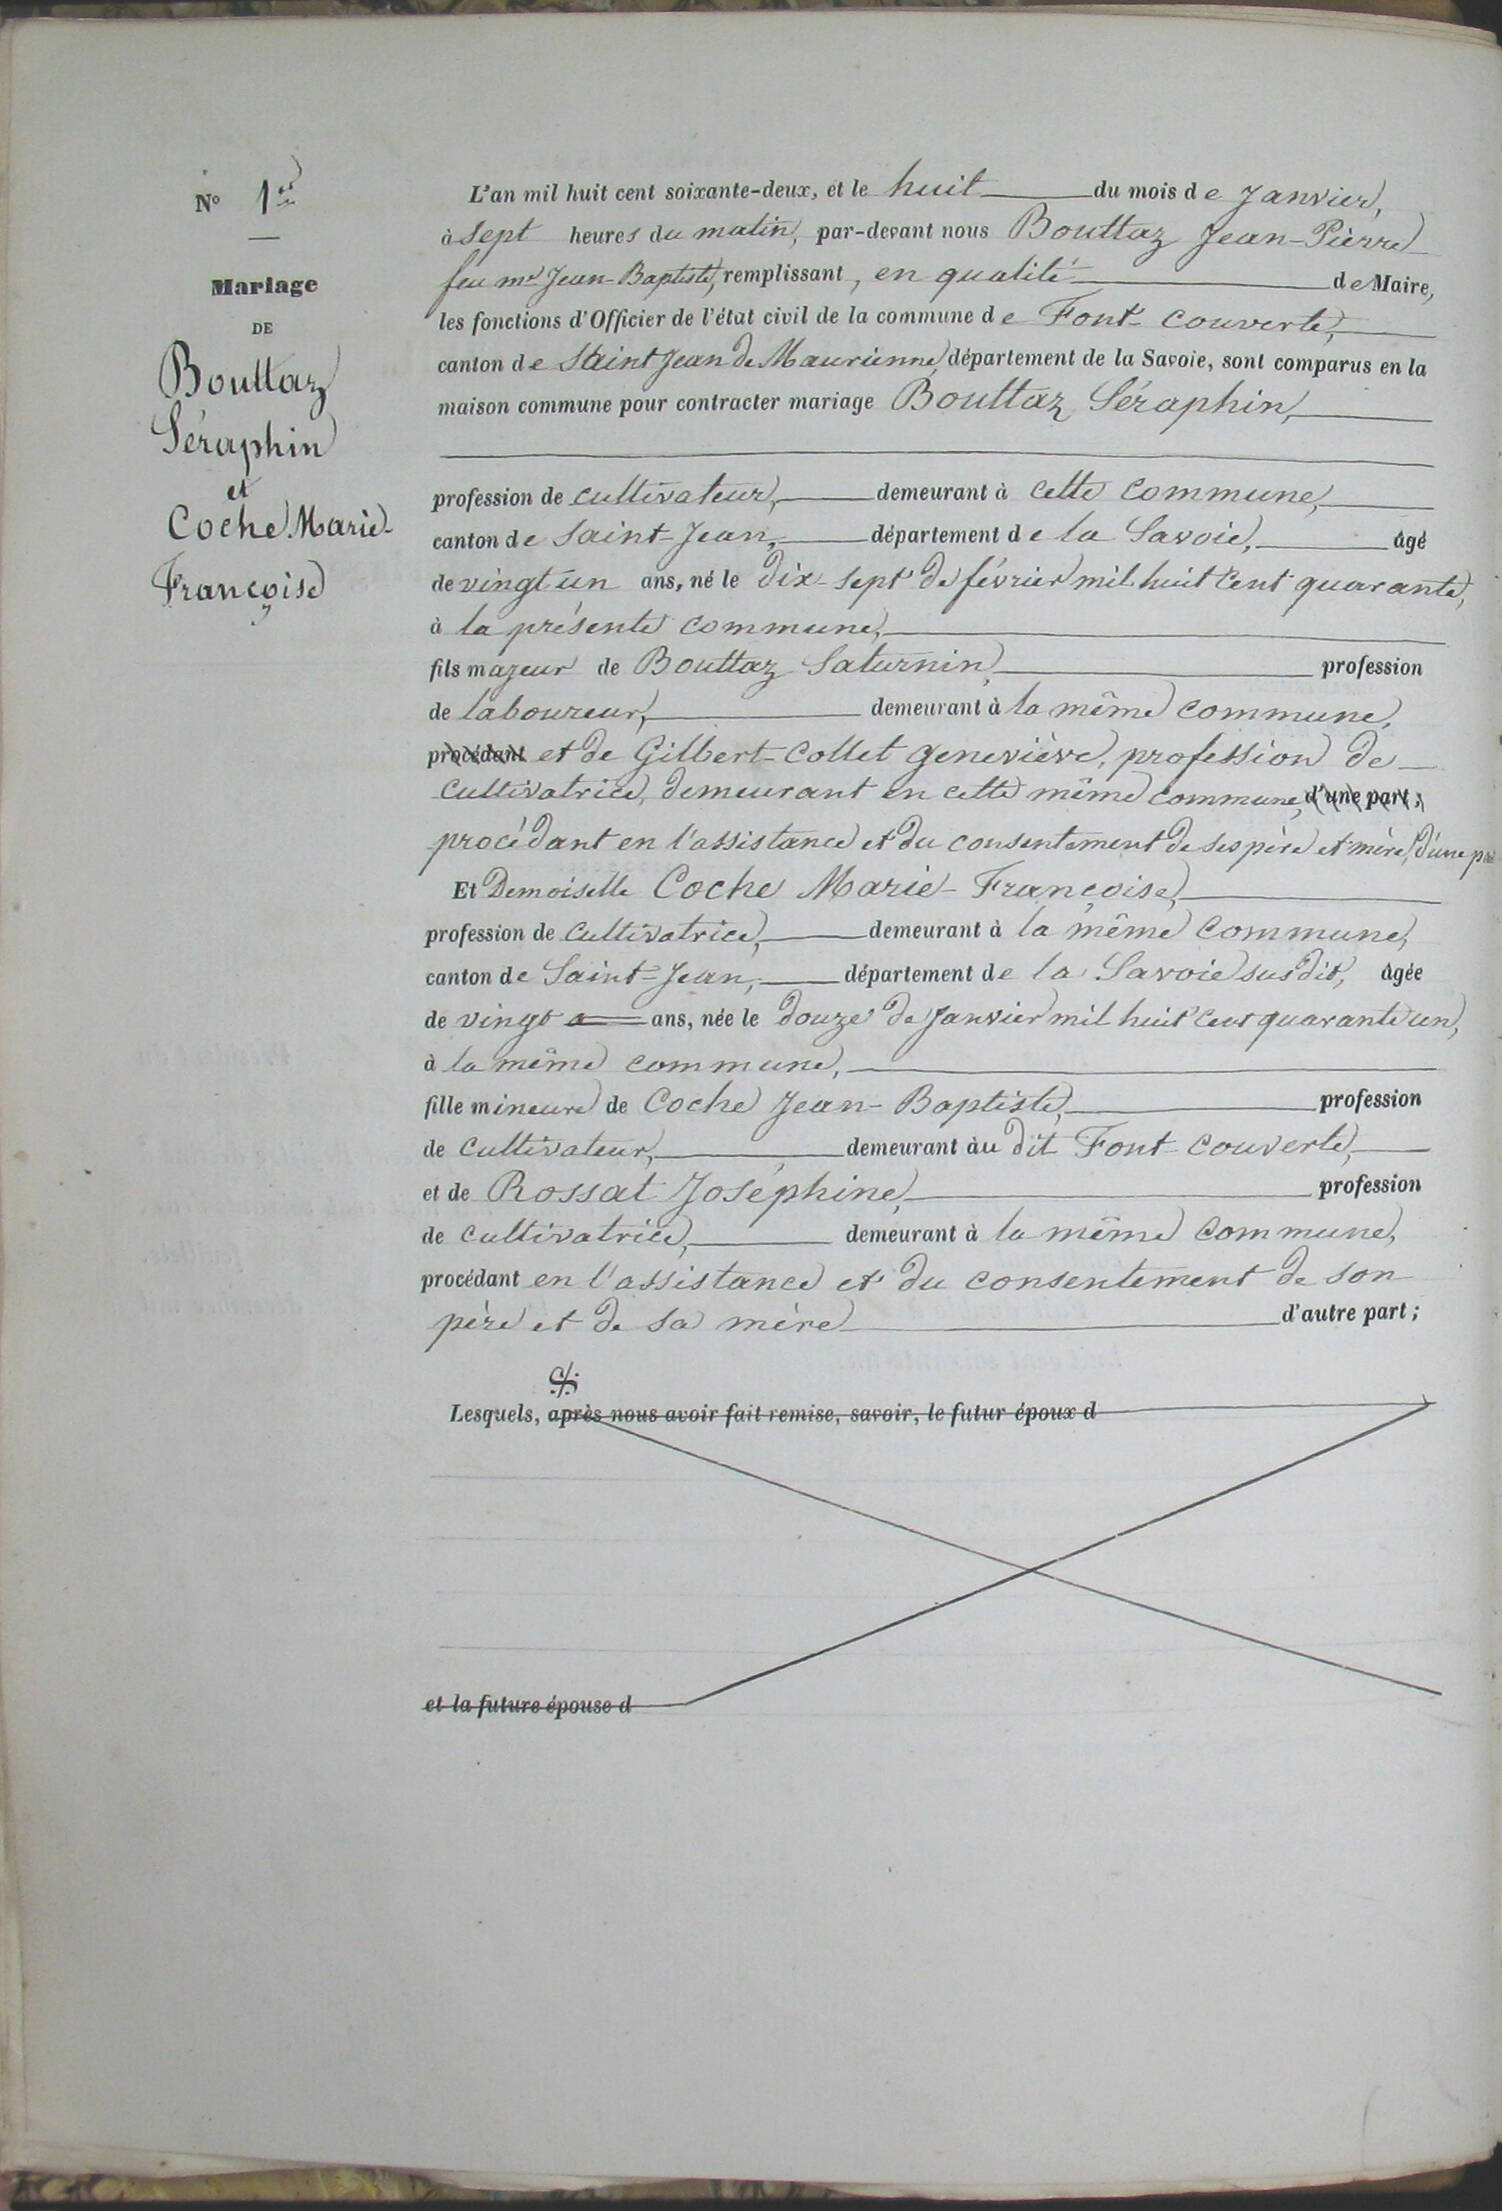 N° 1er
Mariage
DE
Bouttaz
Séraphin
et
Coche Marie-
Françoise
L'an mil huit cent soixante-deux, et le huit du mois de Janvier,
à sept heures du matin, par-devant nous Bouttaz Jean-Pierre
feu mr Jean-Baptiste, remplissant, en qualité de Maire,
les fonctions d'Officier de l'état civil de la commune de Font-couverte,
canton de Saint Jean de Maurienne, département de la Savoie, sont comparus en la
maison commune pour contracter mariage Bouttaz Séraphin,
profession de cultivateur, demeurant à cette commune,
canton de Saint-Jean, département de la Savoie, âgé
de vingt un ans, né le dix-sept de février mil huit cent quarante,
à la présente commune,
fils majeur de Bouttaz Saturnin, profession
de laboureur, demeurant à la même commune,
procédant et de Gilbert-Collet Geneviève, profession de
cultivatrice, demeurant en cette même commune, d'une part ;
procédant en l'assistance et du consentement de ses père et mère, d'une part
Et Demoiselle Coche Marie-Françoise,
profession de cultivatrice, demeurant à la même commune,
canton de Saint-Jean, département de la Savoie susdit, âgée
de vingt ans, née le douze de Janvier mil huit cent quarante un,
à la même commune,
fille mineure de Coche Jean-Baptiste, profession
de cultivateur, demeurant àu dit Font-couverte,
et de Rossat Joséphine, profession
de cultivatrice, demeurant à la même commune,
procédant en l'assistance et du consentement de son
père et de sa mère d'autre part ;
Lesquels, après nous avoir fait remise, savoir, le futur époux d
et la future épouse d